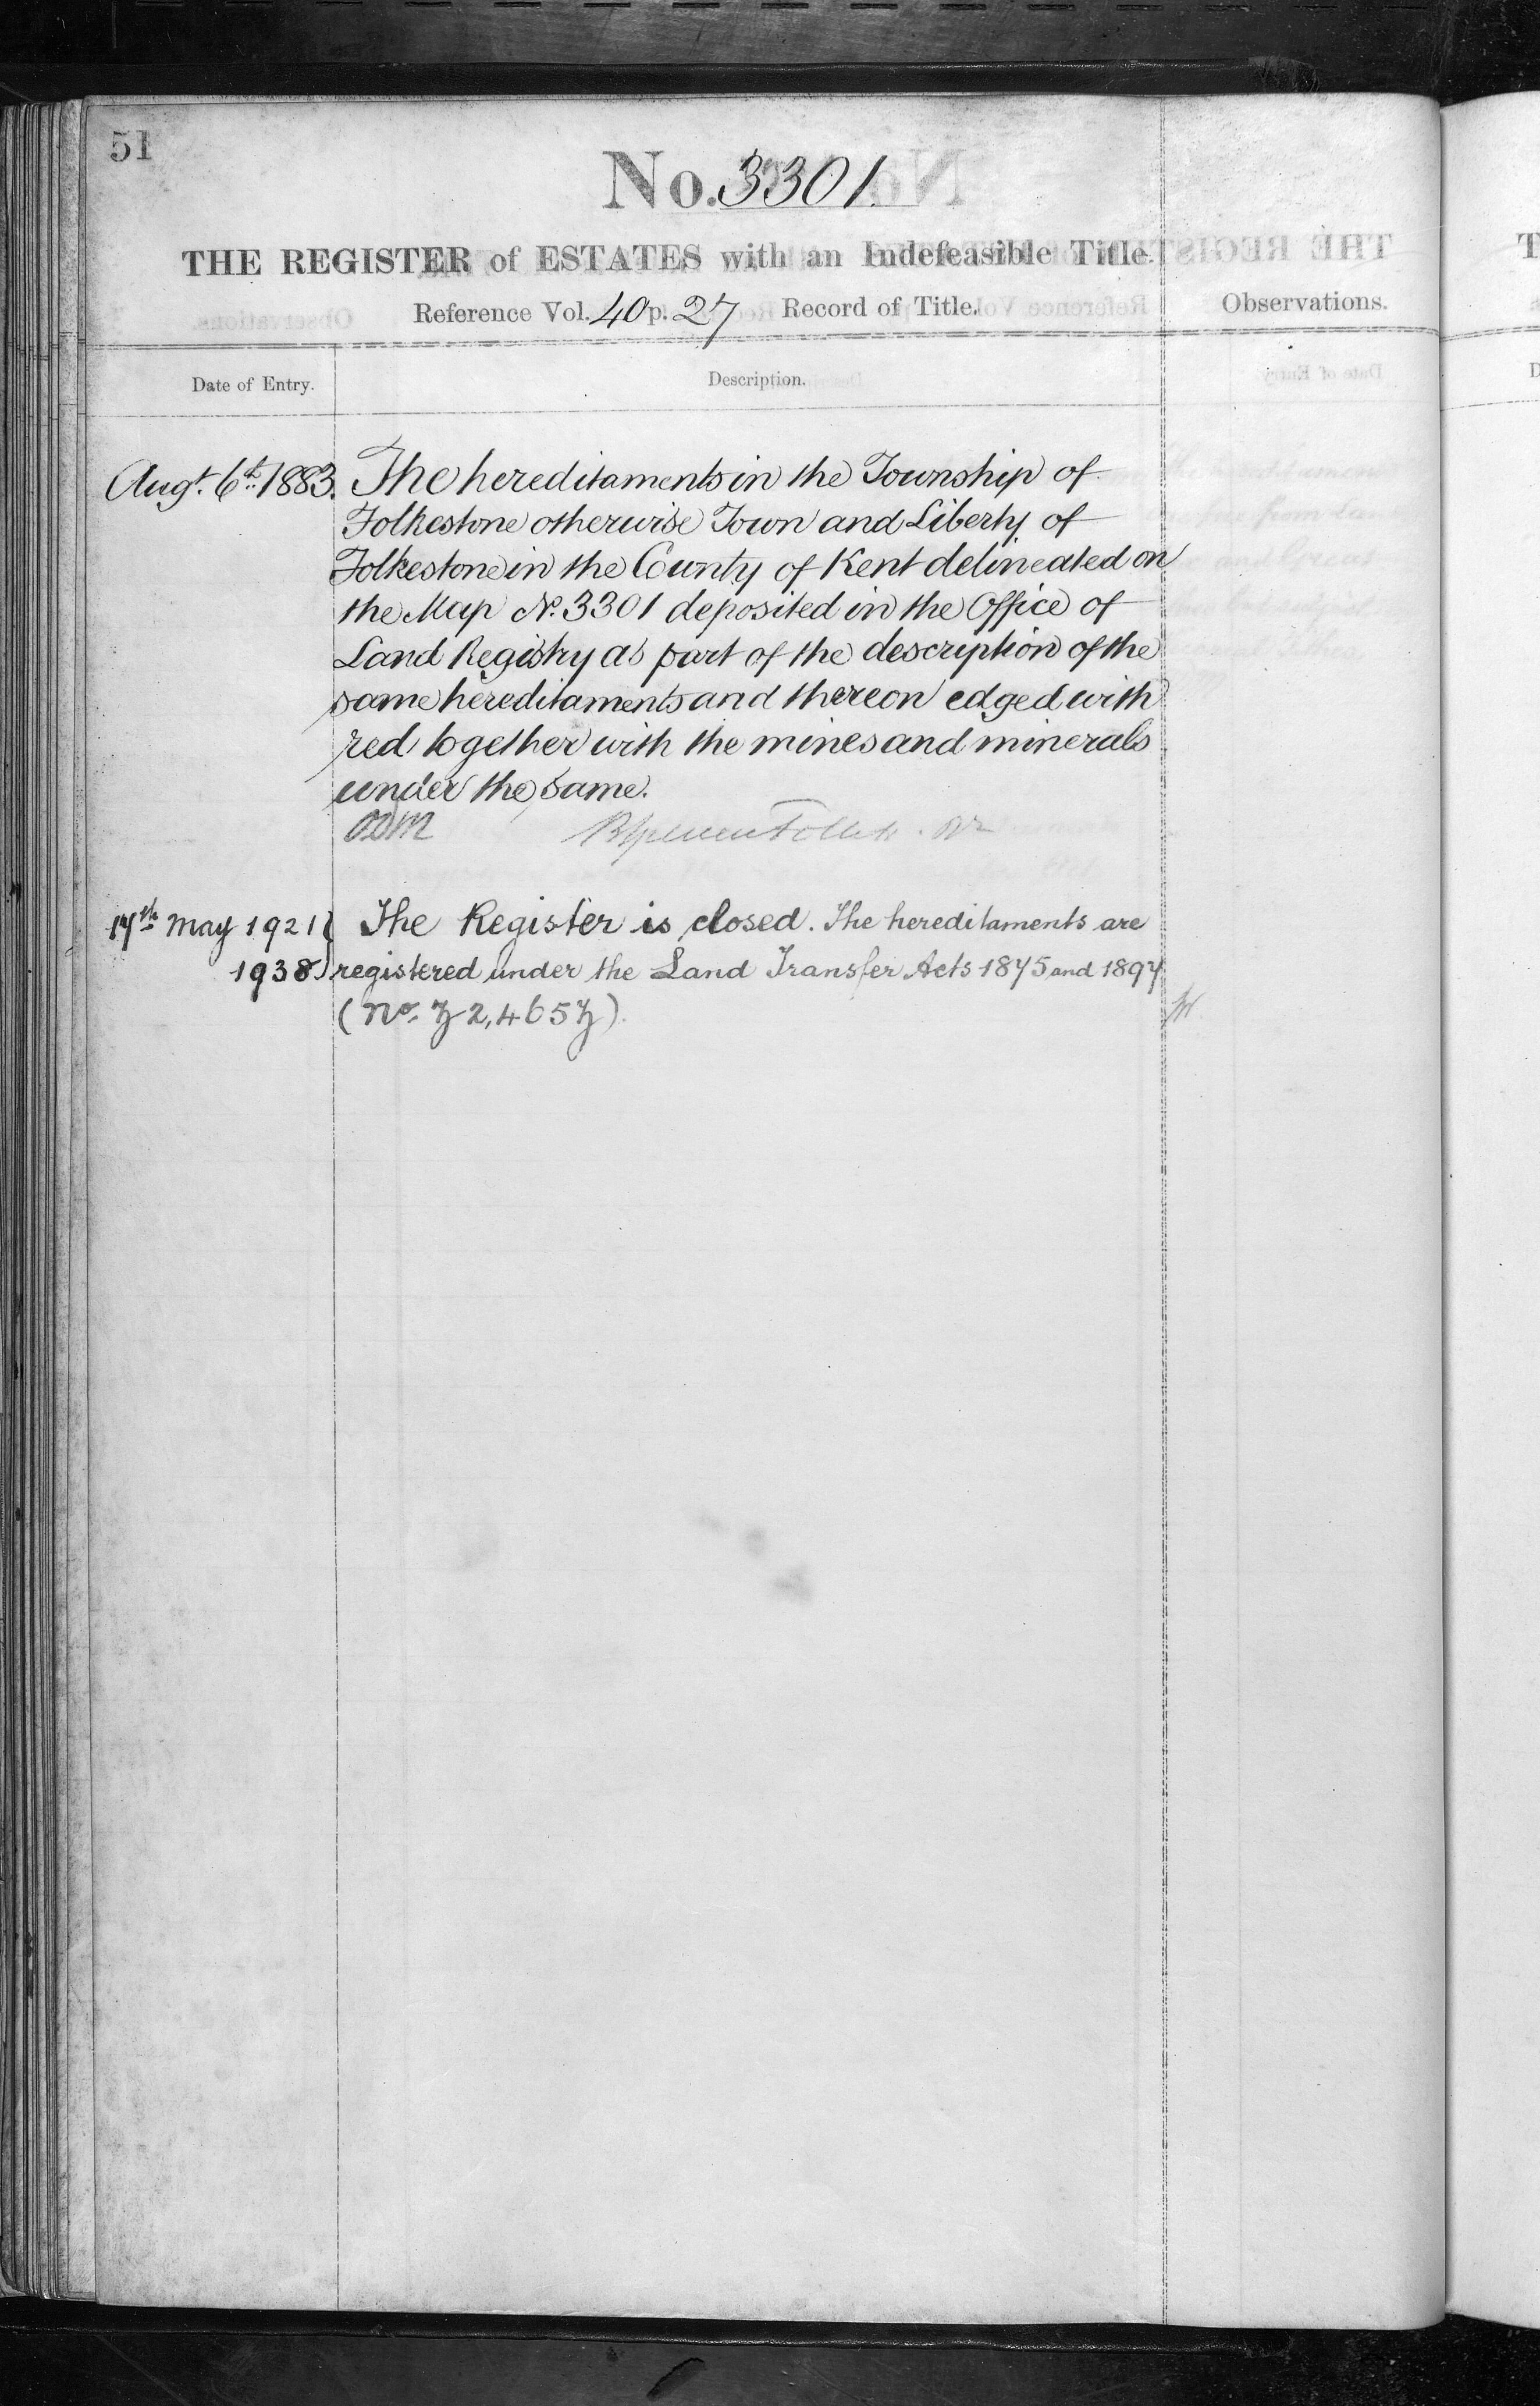 51
No. 3301.
THE REGISTER of ESTATES with an Indefeasible Title.
Reference Vol. 40 p. 27 Record of Title.
Observations.
Date of Entry.
Description.
Augt. 6th. 1883. The hereditaments in the Township of
Folkestone otherwise Town and Liberty of
Folkestone in the County of Kent delineated on
the Map No. 3301 deposited in the Office of
Land Registry as part of the description of the
same hereditaments and thereon edged with
red together with the mines and minerals
under the same.
17th May 1921 The Register is closed. The hereditaments are
1938 registered under the Land Transfer Acts 1875 and 1897